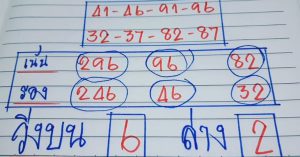 41-46-91-96
32-37-82-87
เน้น 296 96 82
รอง 246 46 32
วิ่งบน 6 ล่าง 2